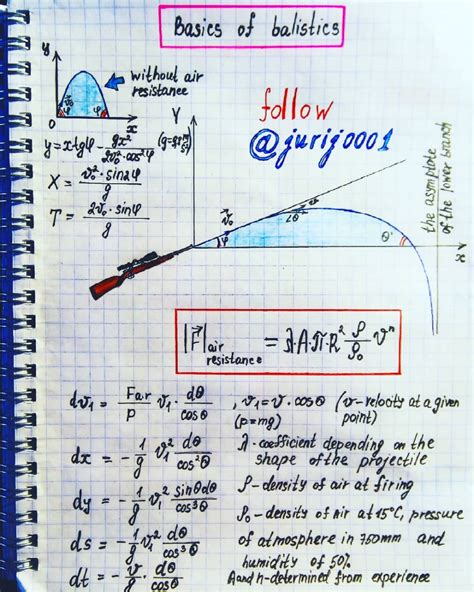 Basics of balistics
y
without air
resistance
v₀
φ
φ
0
x
y=xtgφ - gx²/2v₀²·cos²φ
X = v₀²·sin2φ/g
T = 2v₀·sinφ/g
Y
follow
@jurij0001
the asymptote
of the lower branch
v₀
φ
θ'
x
|F| air resistance = λ·A·π·R² ρ/ρ₀ vⁿ
dv₁ = Far/p v₁· dθ/cosθ , v₁=v·cosθ (v-velocity at a given
(p=mg) point)
dx = -1/g v₁² dθ/cos²θ
λ-coefficient depending on the
shape of the projectile
dy = -1/g v₁² sinθdθ/cos³θ
ρ-density of air at firing
ρ₀-density of air at 15°C, pressure
ds = -1/g v₁² dθ/cos³θ
of atmosphere in 750mm and
humidity of 50%
dt = -v/g · dθ/cosθ
A and n-determined from experience